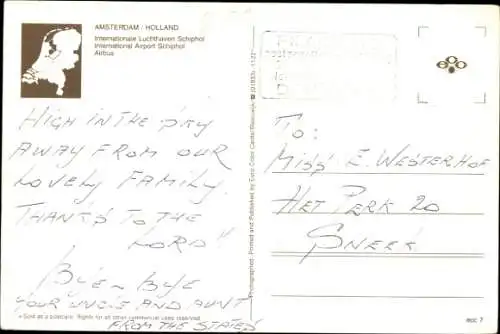 AMSTERDAM / HOLLAND
Internationale Luchthaven Schiphol
International Airport Schiphol
Airbus
HIGH IN THE SKY
AWAY FROM OUR
LOVELY FAMILY.
THANKS TO THE
LORD"
BYE - BYE
YOUR UNCLE AND AUNT
FROM THE STATES
Sold as a postcard. Rights for all other commercial uses reserved
Photographed, Printed and Published by Euro Color Cards
TO:
MISS E. WESTERHOF
HET PERK 20
SNEEK
ecc 7